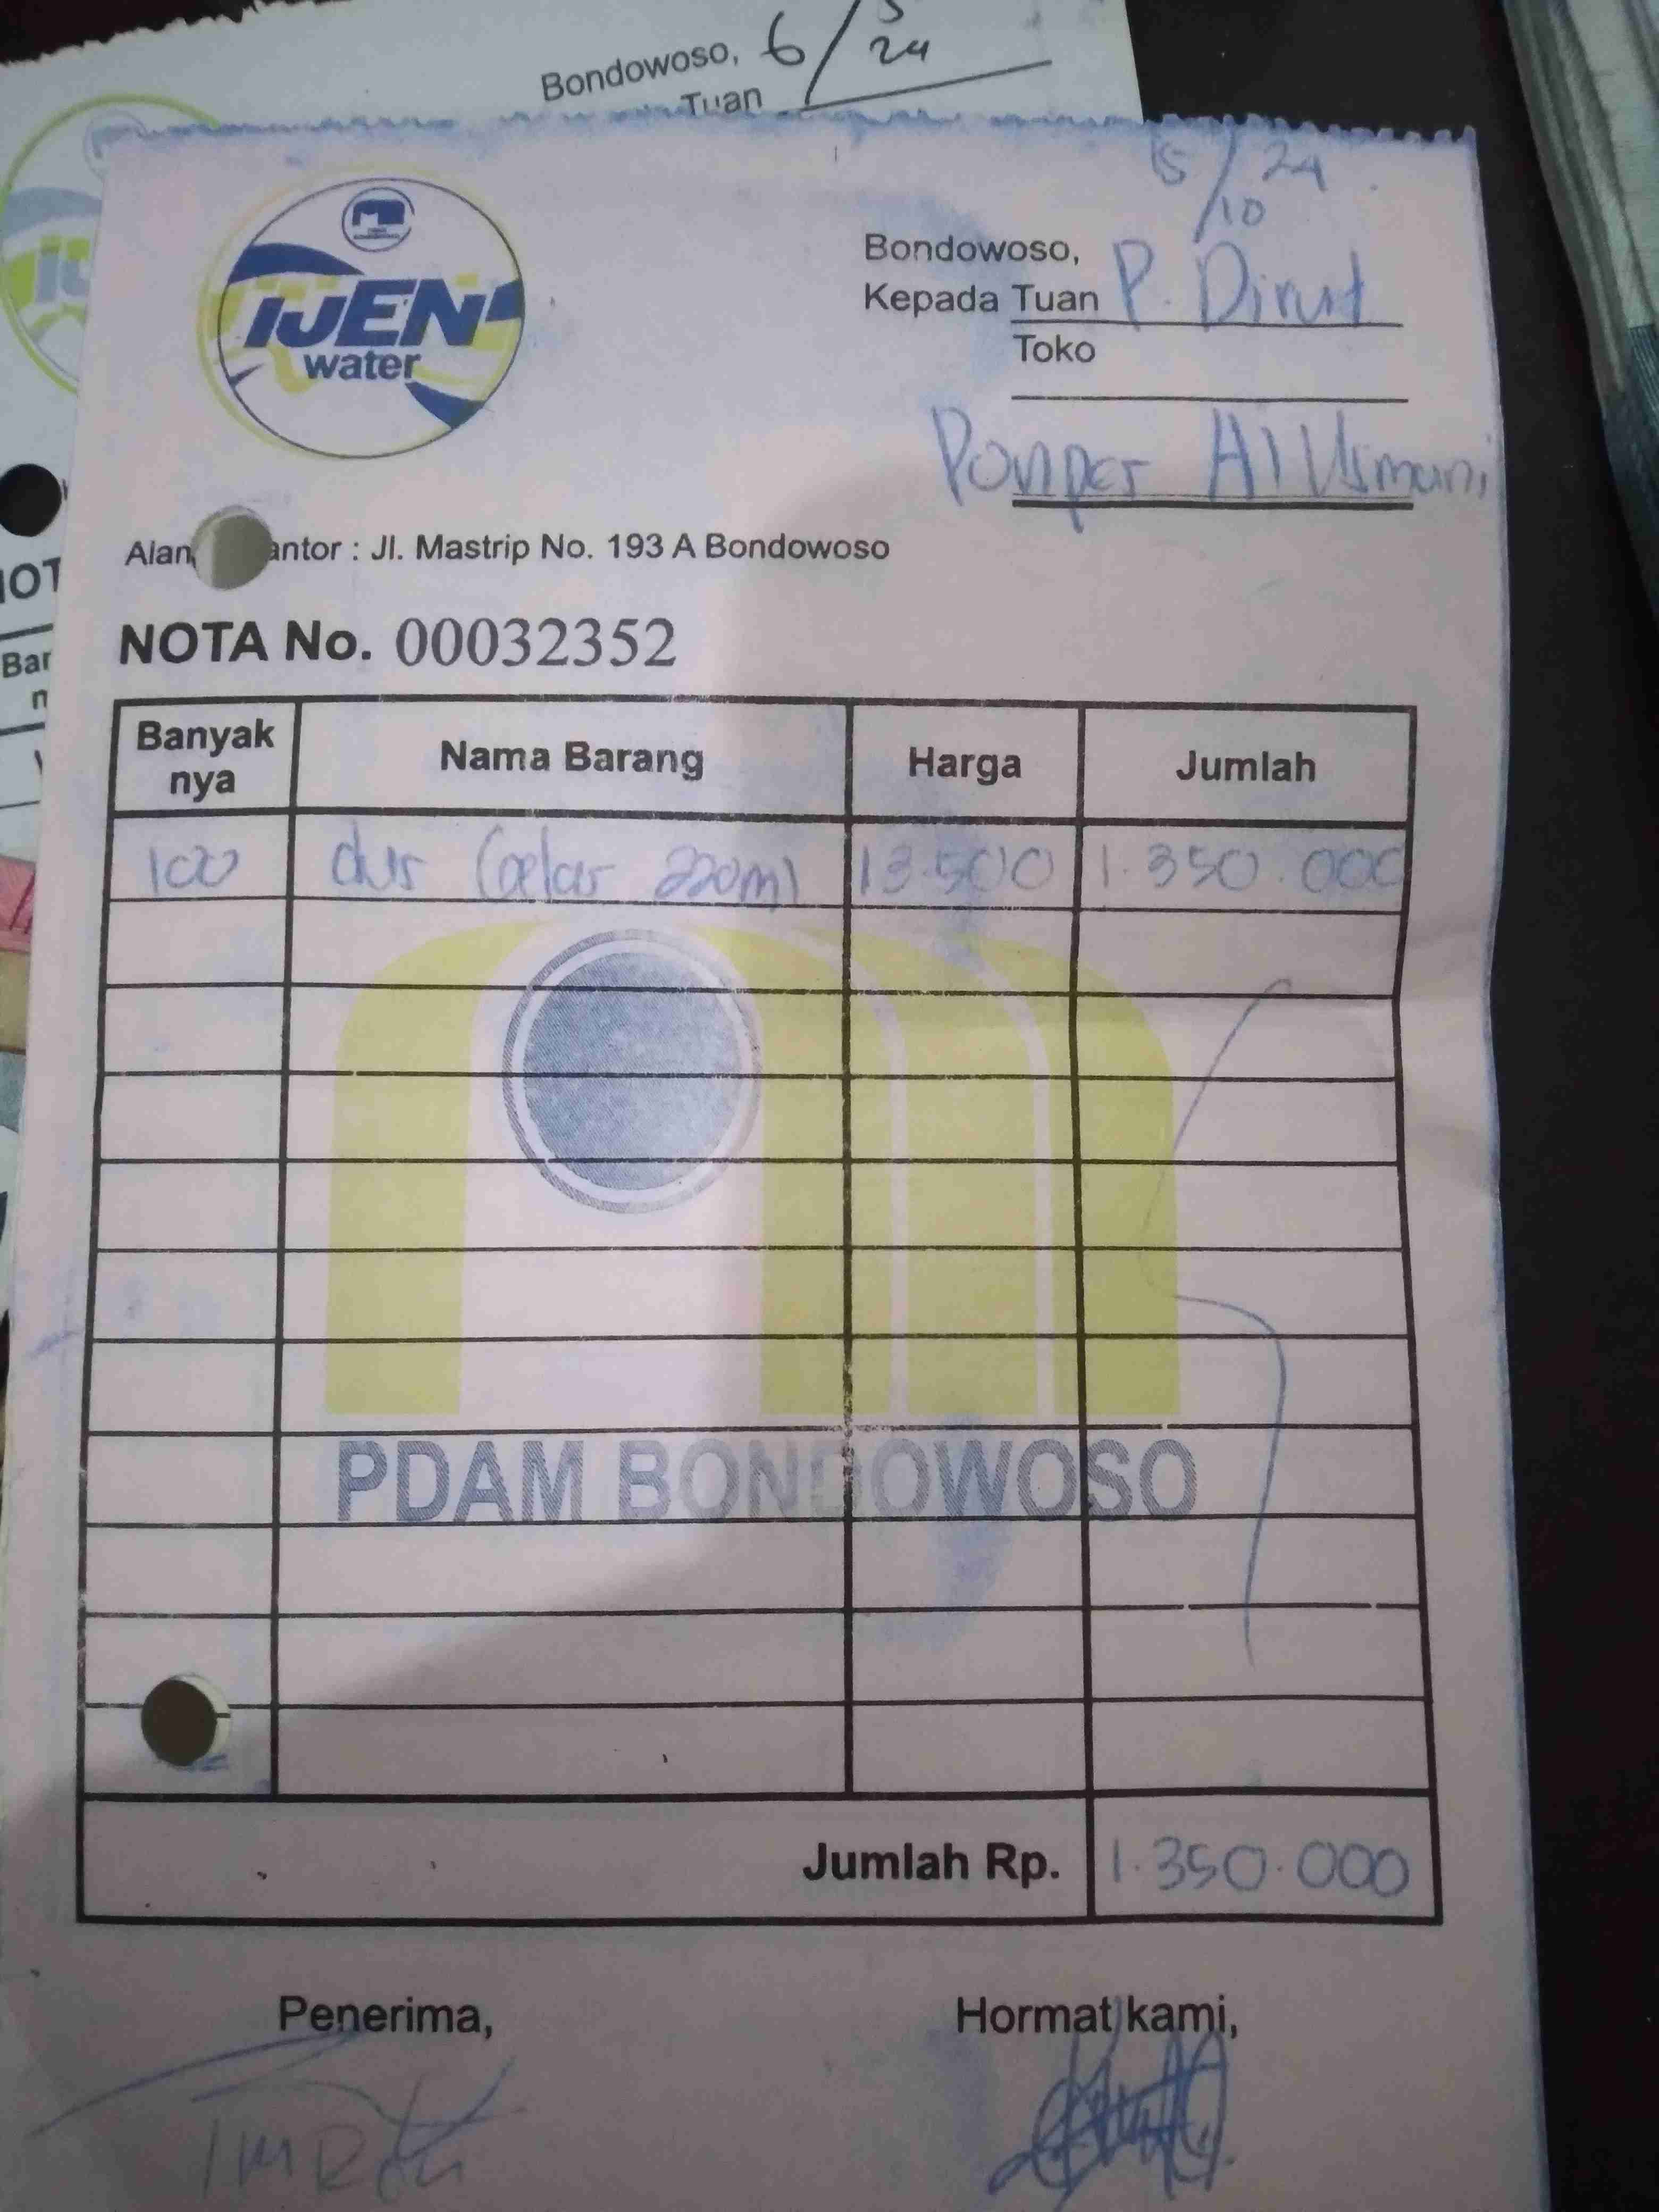 Bondowoso, 6/ 24
Tuan
IJEN
water
15/10 24
Bondowoso,
Kepada Tuan P. Dirut
Toko
Ponpes Al Usmani
Alam antor : Jl. Mastrip No. 193 A Bondowoso
NOTA No. 00032352
Banyak nya Nama Barang Harga Jumlah
100 dus (gelas 220ml 13.500 1.350.000
PDAM BONDOWOSO
Jumlah Rp. 1.350.000
Penerima, Hormat kami,